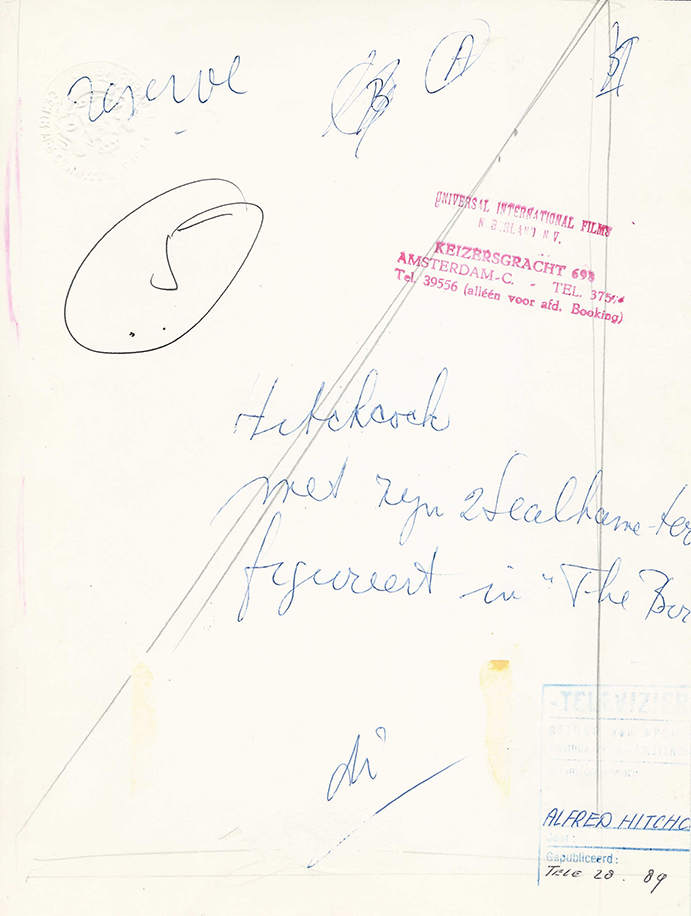 reserve
B
A
UNIVERSAL INTERNATIONAL FILMS
N.V.
KEIZERSGRACHT 693
AMSTERDAM-C. - TEL. 375
Tel. 39556 (alléén voor afd. Booking)
Hitchcock
met zijn 2 Sealhame-ter
figureert in "The Bir
-TELEVIZIER
ALFRED HITCHC
Gepubliceerd:
TELE 28. 89